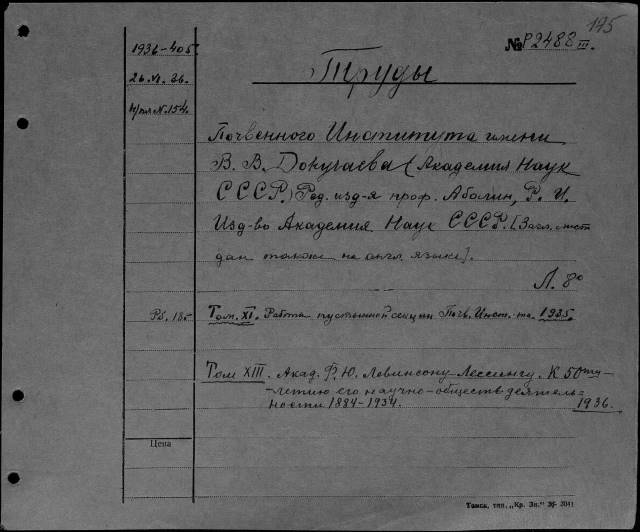 175
1936-405
№ Р2488 III.
26.VI.36.
Труды
Почвенного Института имени
В. В. Докучаева (Академия Наук
СССР.) Ред. изд-я проф. Аболин, Р. И.
Изд-во Академия Наук СССР. [Загл. лист
дан также на англ. языке].
Л. 8°
Рб. 18-
Том. XI. Работа пустынной секции Почв. Инст-та 1935.
Том XIII. Акад. Ф. Ю. Левинсону-Лессингу. К 50ти-
-летию его научно-обществ деятель=
ности 1884-1934. 1936.
Цена
Томск, тип. „Кр. Зн." 36- 2041